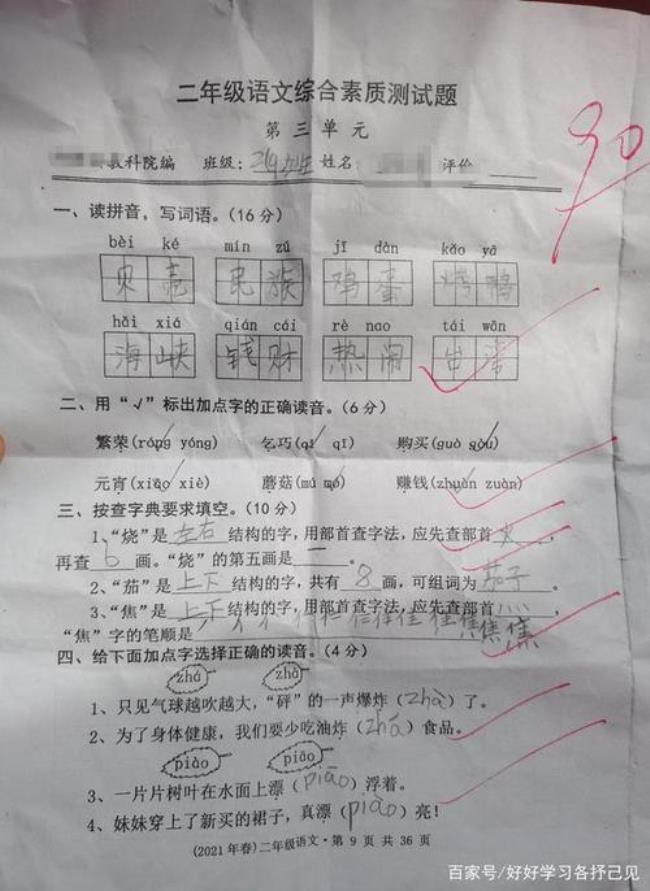 二年级语文综合素质测试题
第三单元
90
教科院编 班级: 姓名 评价
一、读拼音，写词语。(16分)
bèi ké mín zú jī dàn kǎo yā
贝壳 民族 鸡蛋 烤鸭
hǎi xiá qián cái rè nao tái wān
海峡 钱财 热闹 台湾
二、用“√”标出加点字的正确读音。(6分)
繁荣(róng yóng) 乞巧(qǐ qī) 购买(guò gòu)
元宵(xiāo xiè) 蘑菇(mú mó) 赚钱(zhuàn zuàn)
三、按查字典要求填空。(10分)
1、“烧”是 左右 结构的字，用部首查字法，应先查部首 火 ，
再查 6 画。“烧”的第五画是 一 。
2、“茄”是 上下 结构的字，共有 8 画，可组词为 茄子 。
3、“焦”是 上下 结构的字，用部首查字法，应先查部首 灬 。
“焦”字的笔顺是
四、给下面加点字选择正确的读音。(4分)
zhá zhà
1、只见气球越吹越大，“砰”的一声爆炸(zhà)了。
2、为了身体健康，我们要少吃油炸(zhá)食品。
piào piāo
3、一片片树叶在水面上漂(piāo)浮着。
4、妹妹穿上了新买的裙子，真漂(piào)亮！
(2021年春)二年级语文·第 9 页 共 36 页
百家号/好好学习各抒己见